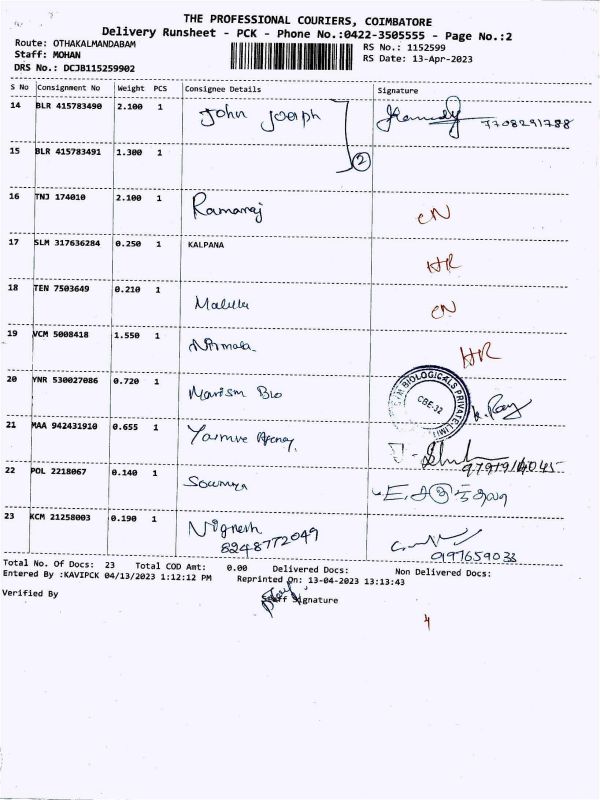 THE PROFESSIONAL COURIERS, COIMBATORE
Delivery Runsheet - PCK - Phone No.:0422-3505555 - Page No.:2
Route: OTHAKALMANDABAM
Staff: MOHAN
DRS No.: DCJB115259902
RS No.: 1152599
RS Date: 13-Apr-2023
S No Consignment No Weight PCS Consignee Details Signature
14 BLR 415783490 2.100 1 John Joseph 7708291788
15 BLR 415783491 1.300 1 2
16 TNJ 174010 2.100 1 Ramaraj CN
17 SLM 317636284 0.250 1 KALPANA HR
18 TEN 7503649 0.210 1 CN
19 VCM 5008418 1.550 1 Nirmala HR
20 YNR 530027086 0.720 1 Marism Bio BIOLOGICALS PRIVATE LIMI CBE-32
21 MAA 942431910 0.655 1 Agency
22 POL 2218067 0.140 1 Soumya
23 KCM 21258003 0.190 1 Vignesh
8248772049
Total No. Of Docs: 23 Total COD Amt: 0.00 Delivered Docs: Non Delivered Docs:
Entered By :KAVIPCK 04/13/2023 1:12:12 PM Reprinted On: 13-04-2023 13:13:43
Verified By Staff Signature
4